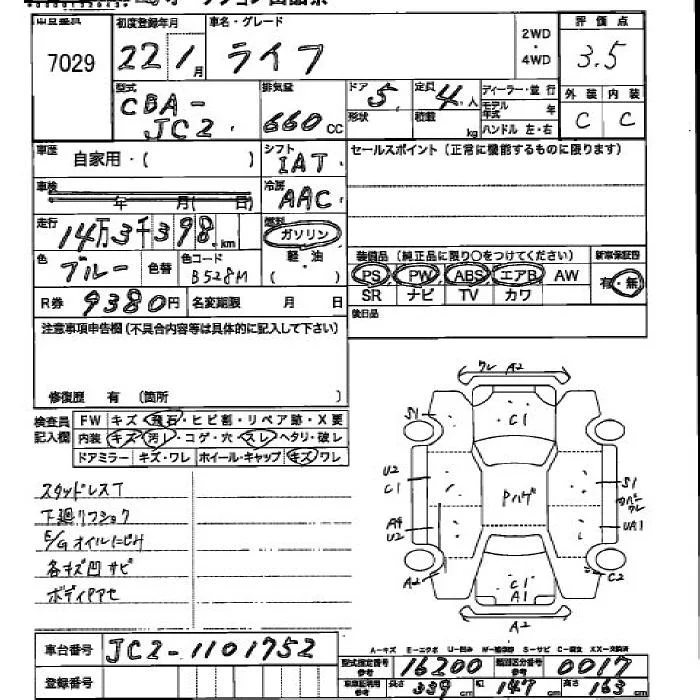 7029
初度登録年月
22 1月
車名・グレード
ライフ
2WD
・
4WD
評価点
3.5
外装 内装
C C
型式
CBA-
JC2
排気量
660cc
ドア
5
形状
定員
4人
積載
kg
ディーラー・並行
モデル
年式 年
ハンドル 左・右
車歴
自家用・( )
シフト
IAT
セールスポイント (正常に機能するものに限ります)
車検
年 月( 日)
冷房
AAC
走行
14万3千398km
燃料
ガソリン
軽・油
( )
色
ブルー
色替
色コード
B528M
装備品 (純正品に限り○をつけてください)
PS PW ABS エアB AW
SR ナビ TV カワ
新車保証書
有・無
R券 9380円 名変期限 月 日
後日品
注意事項申告欄 (不具合内容等は具体的に記入して下さい)
修復歴 有 (箇所 )
検査員
記入欄
FW キズ・飛石・ヒビ割・リペア跡・X要
内装 キズ・汚レ・コゲ・穴・スレ・ヘタリ・破レ
ドアミラー キズ・ワレ ホイール・キャップ キズ・ワレ
スタッドレスT
下廻リフショク
E/Gオイルにじみ
各キズ凹サビ
ボディアセ
ワレ A2
S1
C1
U2
C1
Pハゲ
S1
A4
U2
UA1
A2
C2
C1
A1
A2
車台番号 JC2-1101752
登録番号
A-キズ E-エクボ U-凹み W-補修跡 S-サビ C-腐食 XX-交換済
型式指定番号 16200 類別区分番号 0017
参考 長さ 339cm 幅 147cm 高さ 163cm